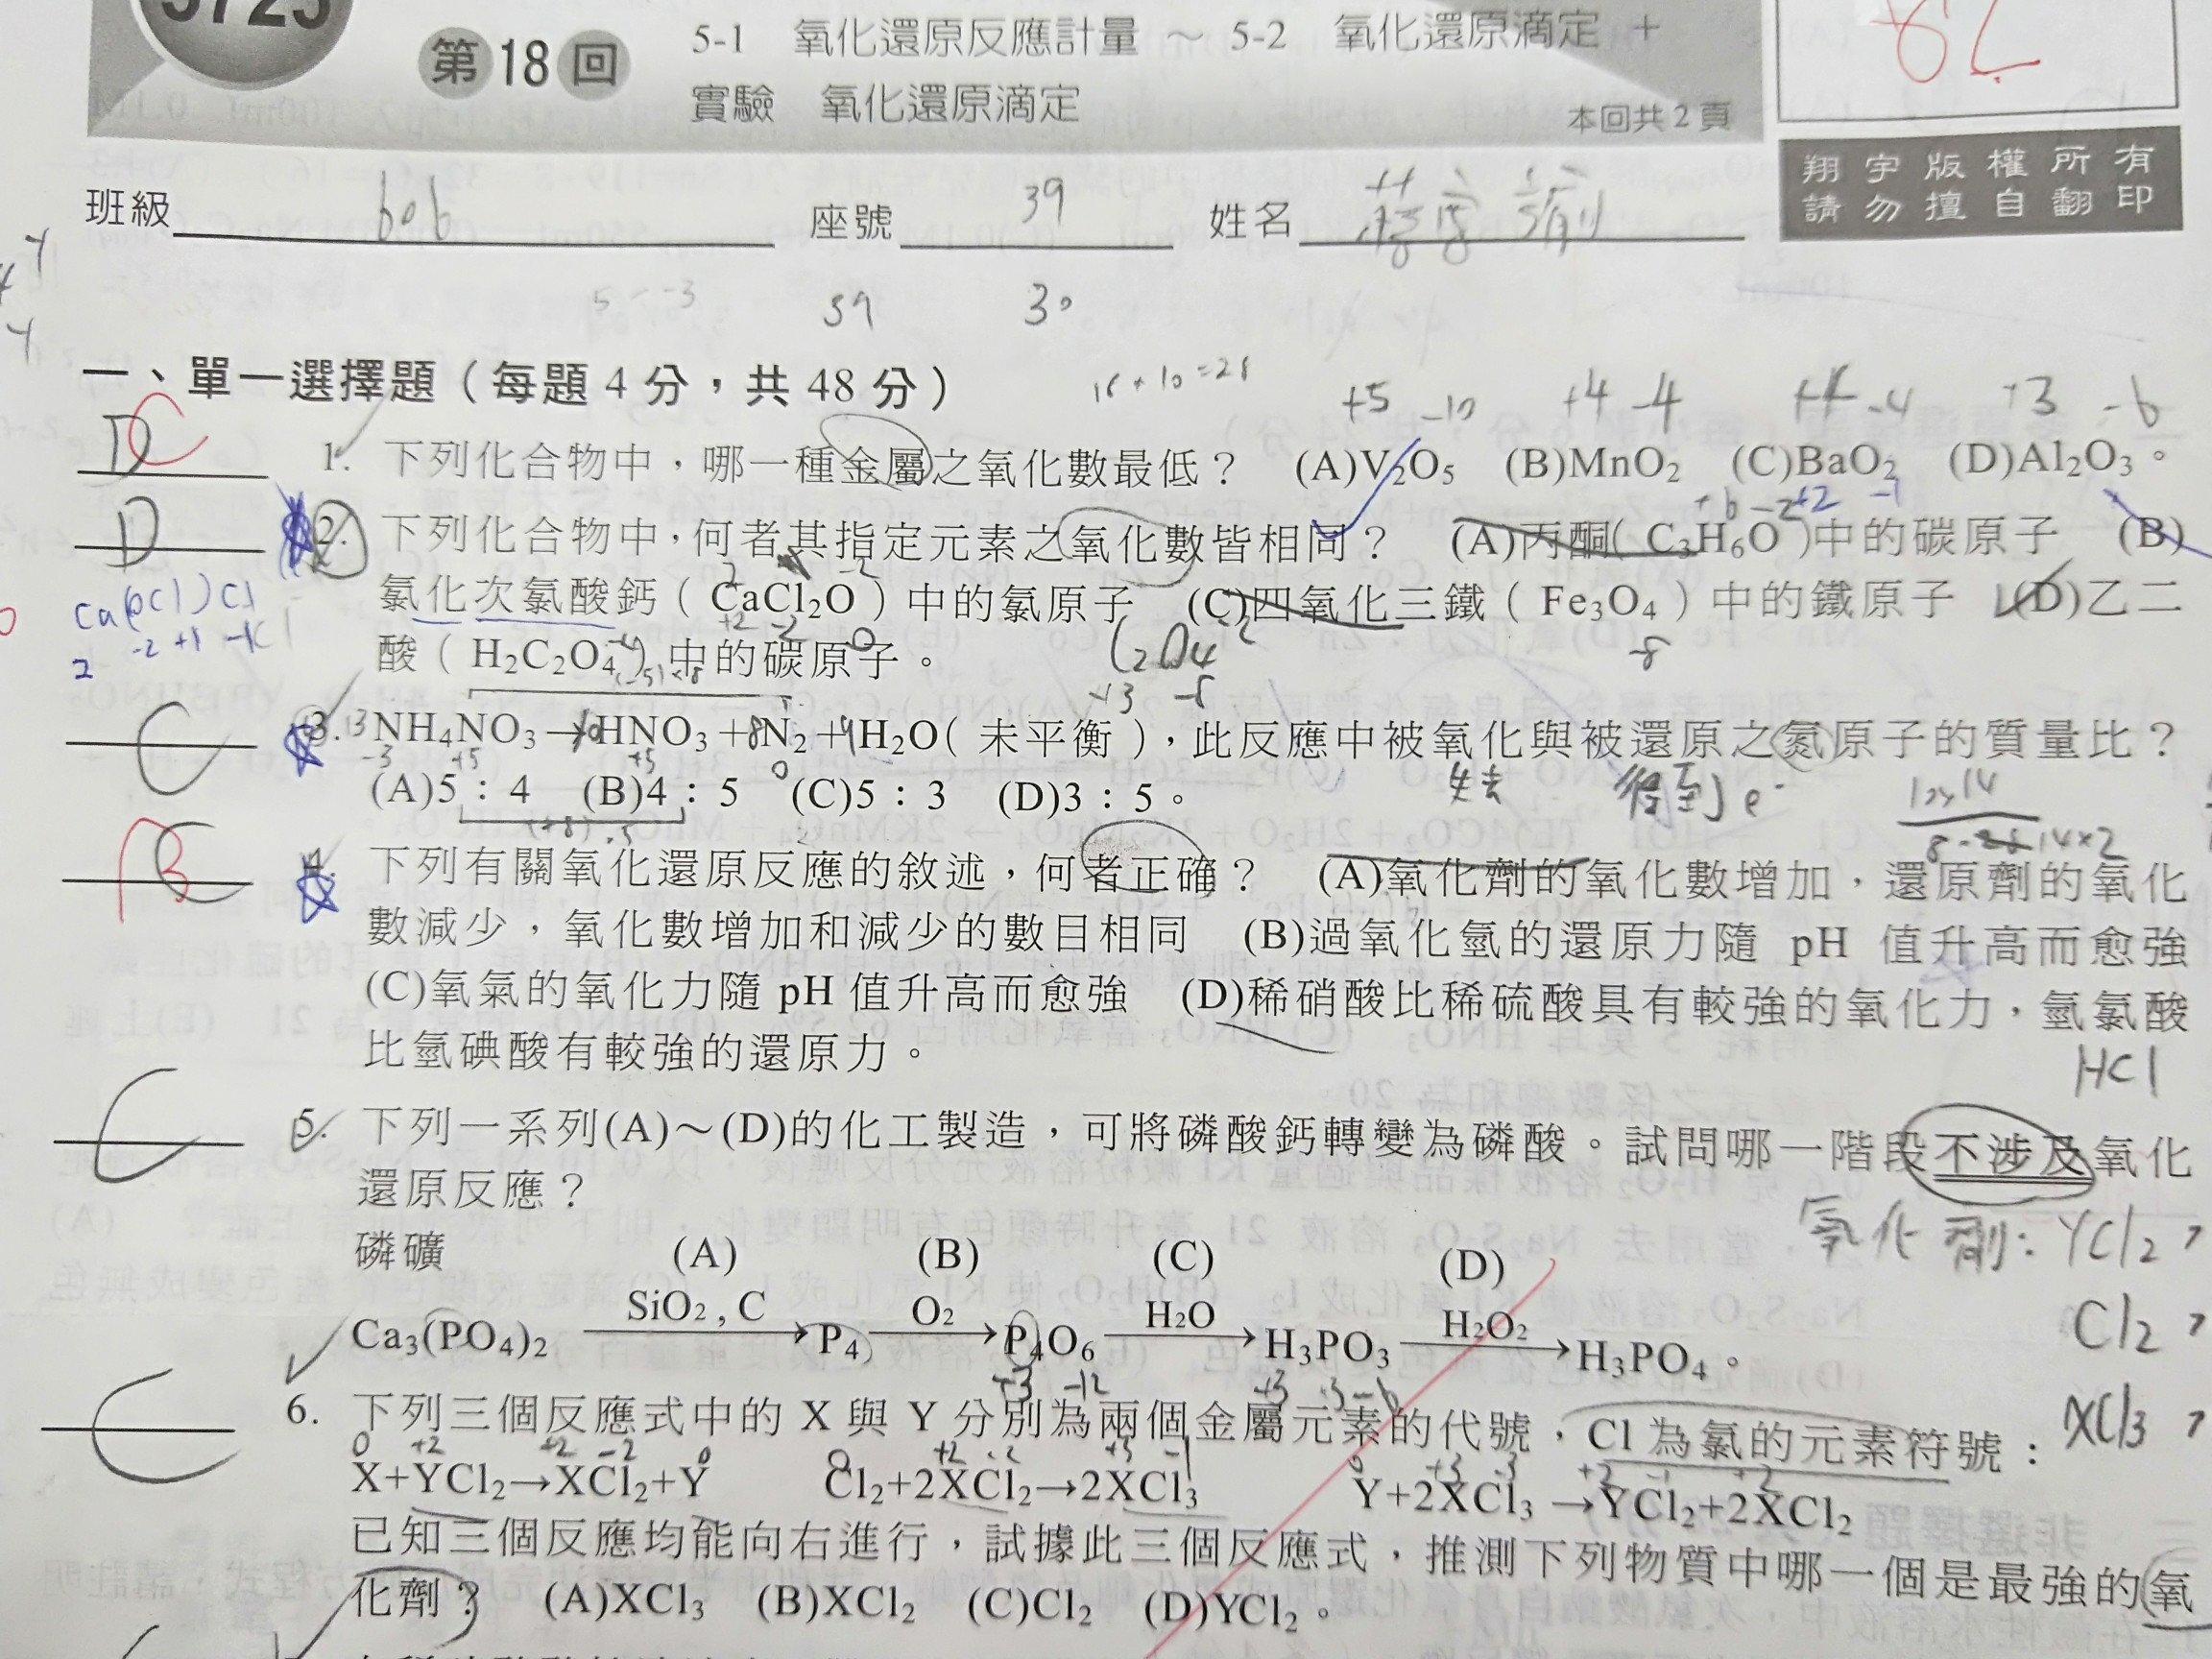 第18回
5-1 氧化還原反應計量 ～ 5-2 氧化還原滴定 +
實驗 氧化還原滴定
本回共2頁
翔宇版權所有
請勿擅自翻印
班級 606 座號 39 姓名
5 -3 39 30
一、單一選擇題（每題4分，共48分）
18+10=28
+5 -10 +4 -4 +4 -4 +3 -6
D C 1. 下列化合物中，哪一種金屬之氧化數最低？ (A)V2O5 (B)MnO2 (C)BaO2 (D)Al2O3。
+6 -2 +2 -1
D 2. 下列化合物中，何者其指定元素之氧化數皆相同？ (A)丙酮( C3H6O )中的碳原子 (B)
氯化次氯酸鈣（CaCl2O）中的氯原子 (C)四氧化三鐵（Fe3O4）中的鐵原子 (D)乙二
Ca(OCl)Cl
-2 +1 -1
2
酸（H2C2O4）中的碳原子。
C2O4
+3 -8
-8
C 3. 13NH4NO3→10HNO3+8N2+9H2O（未平衡），此反應中被氧化與被還原之氮原子的質量比？
-3 +5 +5 0
(A)5：4 (B)4：5 (C)5：3 (D)3：5。
失去 得到 e-
B C 4. 下列有關氧化還原反應的敘述，何者正確？ (A)氧化劑的氧化數增加，還原劑的氧化
數減少，氧化數增加和減少的數目相同 (B)過氧化氫的還原力隨 pH 值升高而愈強
(C)氧氣的氧化力隨 pH 值升高而愈強 (D)稀硝酸比稀硫酸具有較強的氧化力，氫氯酸
比氫碘酸有較強的還原力。
HCl
C 5. 下列一系列(A)～(D)的化工製造，可將磷酸鈣轉變為磷酸。試問哪一階段不涉及氧化
還原反應？
氧化劑：YCl2，
磷礦 (A) (B) (C) (D)
SiO2 , C O2 H2O H2O2
Ca3(PO4)2 → P4 → P4O6 → H3PO3 → H3PO4。
Cl2，
+3 -12 +3 +3 -6
C 6. 下列三個反應式中的 X 與 Y 分別為兩個金屬元素的代號，Cl 為氯的元素符號：
XCl3，
0 +2 +2 -2 0 0 +2 -2 +3 -1 0 +3 -3 +2 -1 +2
X+YCl2→XCl2+Y Cl2+2XCl2→2XCl3 Y+2XCl3→YCl2+2XCl2
已知三個反應均能向右進行，試據此三個反應式，推測下列物質中哪一個是最強的氧
化劑？ (A)XCl3 (B)XCl2 (C)Cl2 (D)YCl2。